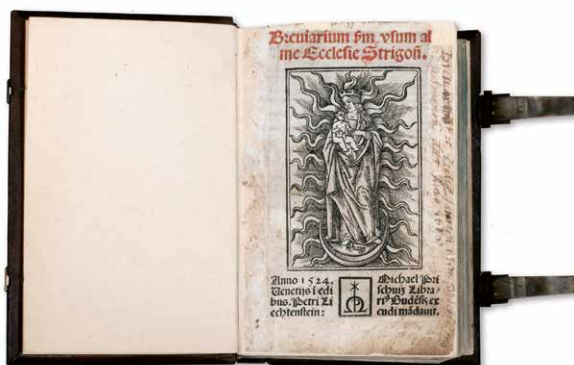 Breuiarium ẜm vsum al
me Ecclesie Strigoñ.
Anno 1524.
Uenetijs ī edi
bus. Petri Li
echtenstein:
Michael Pri
schuiz Libra-
riꝰ Budēsis ex
cudi mādauit.